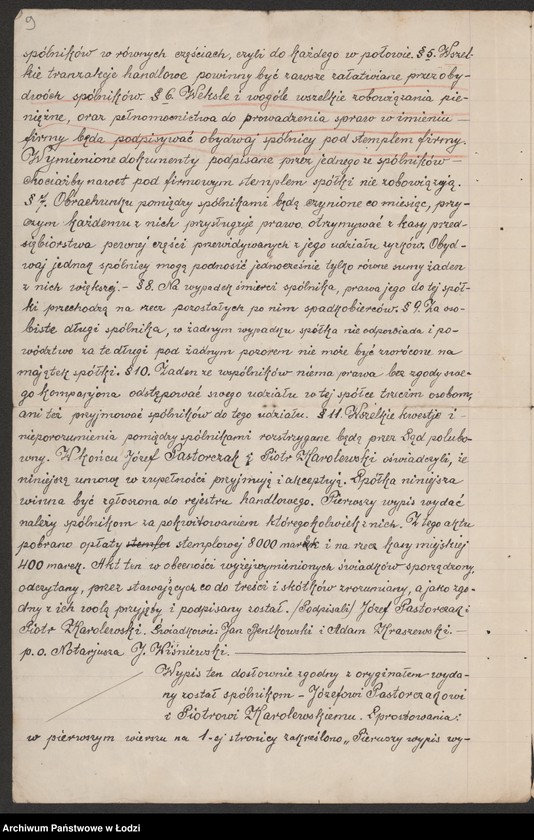 9
spólników w równych częściach, czyli do każdego w połowie. § 5. Wszel-
kie tranzakcje handlowe powinny być zawsze załatwiane przez oby-
dwóch spólników. § 6. Weksle i wogóle wszelkie zobowiązania pie-
niężne, oraz pełnomocnictwa do prowadzenia spraw w imieniu –
firmy będą podpisywać obydwaj spólnicy pod stemplem firmy.
Wymienione dokumenty podpisane przez jednego ze spólników –
chociażby nawet pod firmowym stemplem spółki nie zobowiązują.
§ 7. Obrachunku pomiędzy spólnikami będą czynione co miesiąc, przy-
czym każdemu z nich przysługuje prawo otrzymywać z kasy przed-
siębiorstwa pewnej części przewidywanych z jego udziału zysków. Obyd-
waj jednak spólnicy mogą podnosić jednocześnie tylko równe sumy żaden
z nich większej. – § 8. Na wypadek śmierci spólnika, prawa jego do tej spół-
ki przechodzą na rzecz pozostałych po nim spadkobierców. § 9. Za oso-
biste długi spólnika, w żadnym wypadku spółka nie odpowiada i po-
wództwo za te długi pod żadnym pozorem nie może być zwrócone na
majątek spółki. § 10. Żaden ze wspólników niema prawa bez zgody swe-
go kompanjona odstępować swego udziału w tej spółce trzecim osobom,
ani też przyjmować spólników do tego udziału. § 11. Wszelkie kwestje i –
nieporozumienia pomiędzy spólnikami rozstrzygane będą przez Sąd polubo-
wny. W końcu Józef Pastorczak i Piotr Karolewski oświadczyli, że
niniejszą umowę w zupełności przyjmują i akceptują. Spółka niniejsza
winna być zgłoszona do rejestru handlowego. Pierwszy wypis wydać
należy spólnikom za pokwitowaniem któregokolwiek z nich. Z tego aktu
pobrano opłaty stemfor stemplowej 8000 marek i na rzecz kasy miejskiej
400 marek. Akt ten w obecności wyżej wymienionych świadków sporządzony,
odczytany, przez stawających co do treści i skutków zrozumiany, a jako zgo-
dny z ich wolą przyjęty i podpisany został. /Podpisali/ Józef Pastorczak i
Piotr Karolewski. Świadkowie: Jan Bentkowski i Adam Kraszewski. –
p. o. Notarjusza J. Wiśniewski.
Wypis ten dosłownie zgodny z oryginałem wyda-
ny został spólnikom – Józefowi Pastorczakowi
i Piotrowi Karolewskiemu. Sprostowania:
w pierwszym wierszu na 1-ej stronicy zakreślono „Pierwszy wypis wy-
Archiwum Państwowe w Łodzi